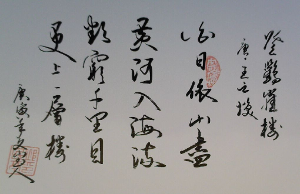 登鹳雀楼
唐 王之涣
白日依山盡
黄河入海流
欲窮千里目
更上一層樓
庚寅年